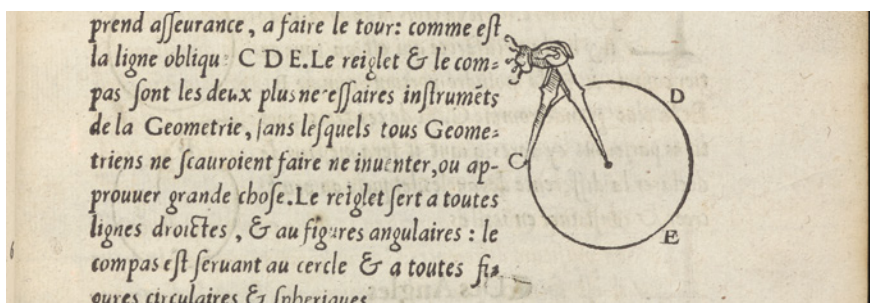 prend aſſeurance, a faire le tour: comme eſt
la ligne obliqu: C D E. Le reiglet & le com=
pas ſont les deux plus neceſſaires inſtrumẽts
de la Geometrie, ſans leſquels tous Geome=
triens ne ſcauroient faire ne inuenter, ou ap-
prouuer grande choſe. Le reiglet ſert a toutes
lignes droictes, & au figures angulaires: le
compas eſt ſeruant au cercle & a toutes fi=
gures circulaires & ſpheriques
C
D
E